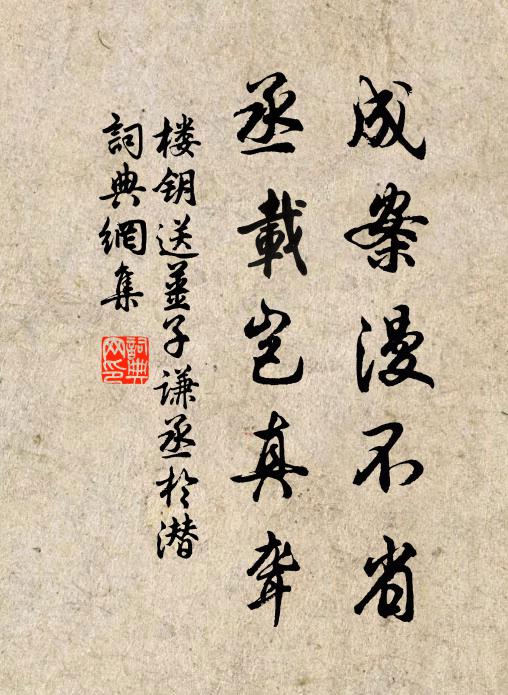 成案漫不省
丞載岂真聋
楼钥送姜子谦丞於潜
詞典網集
詞典网印